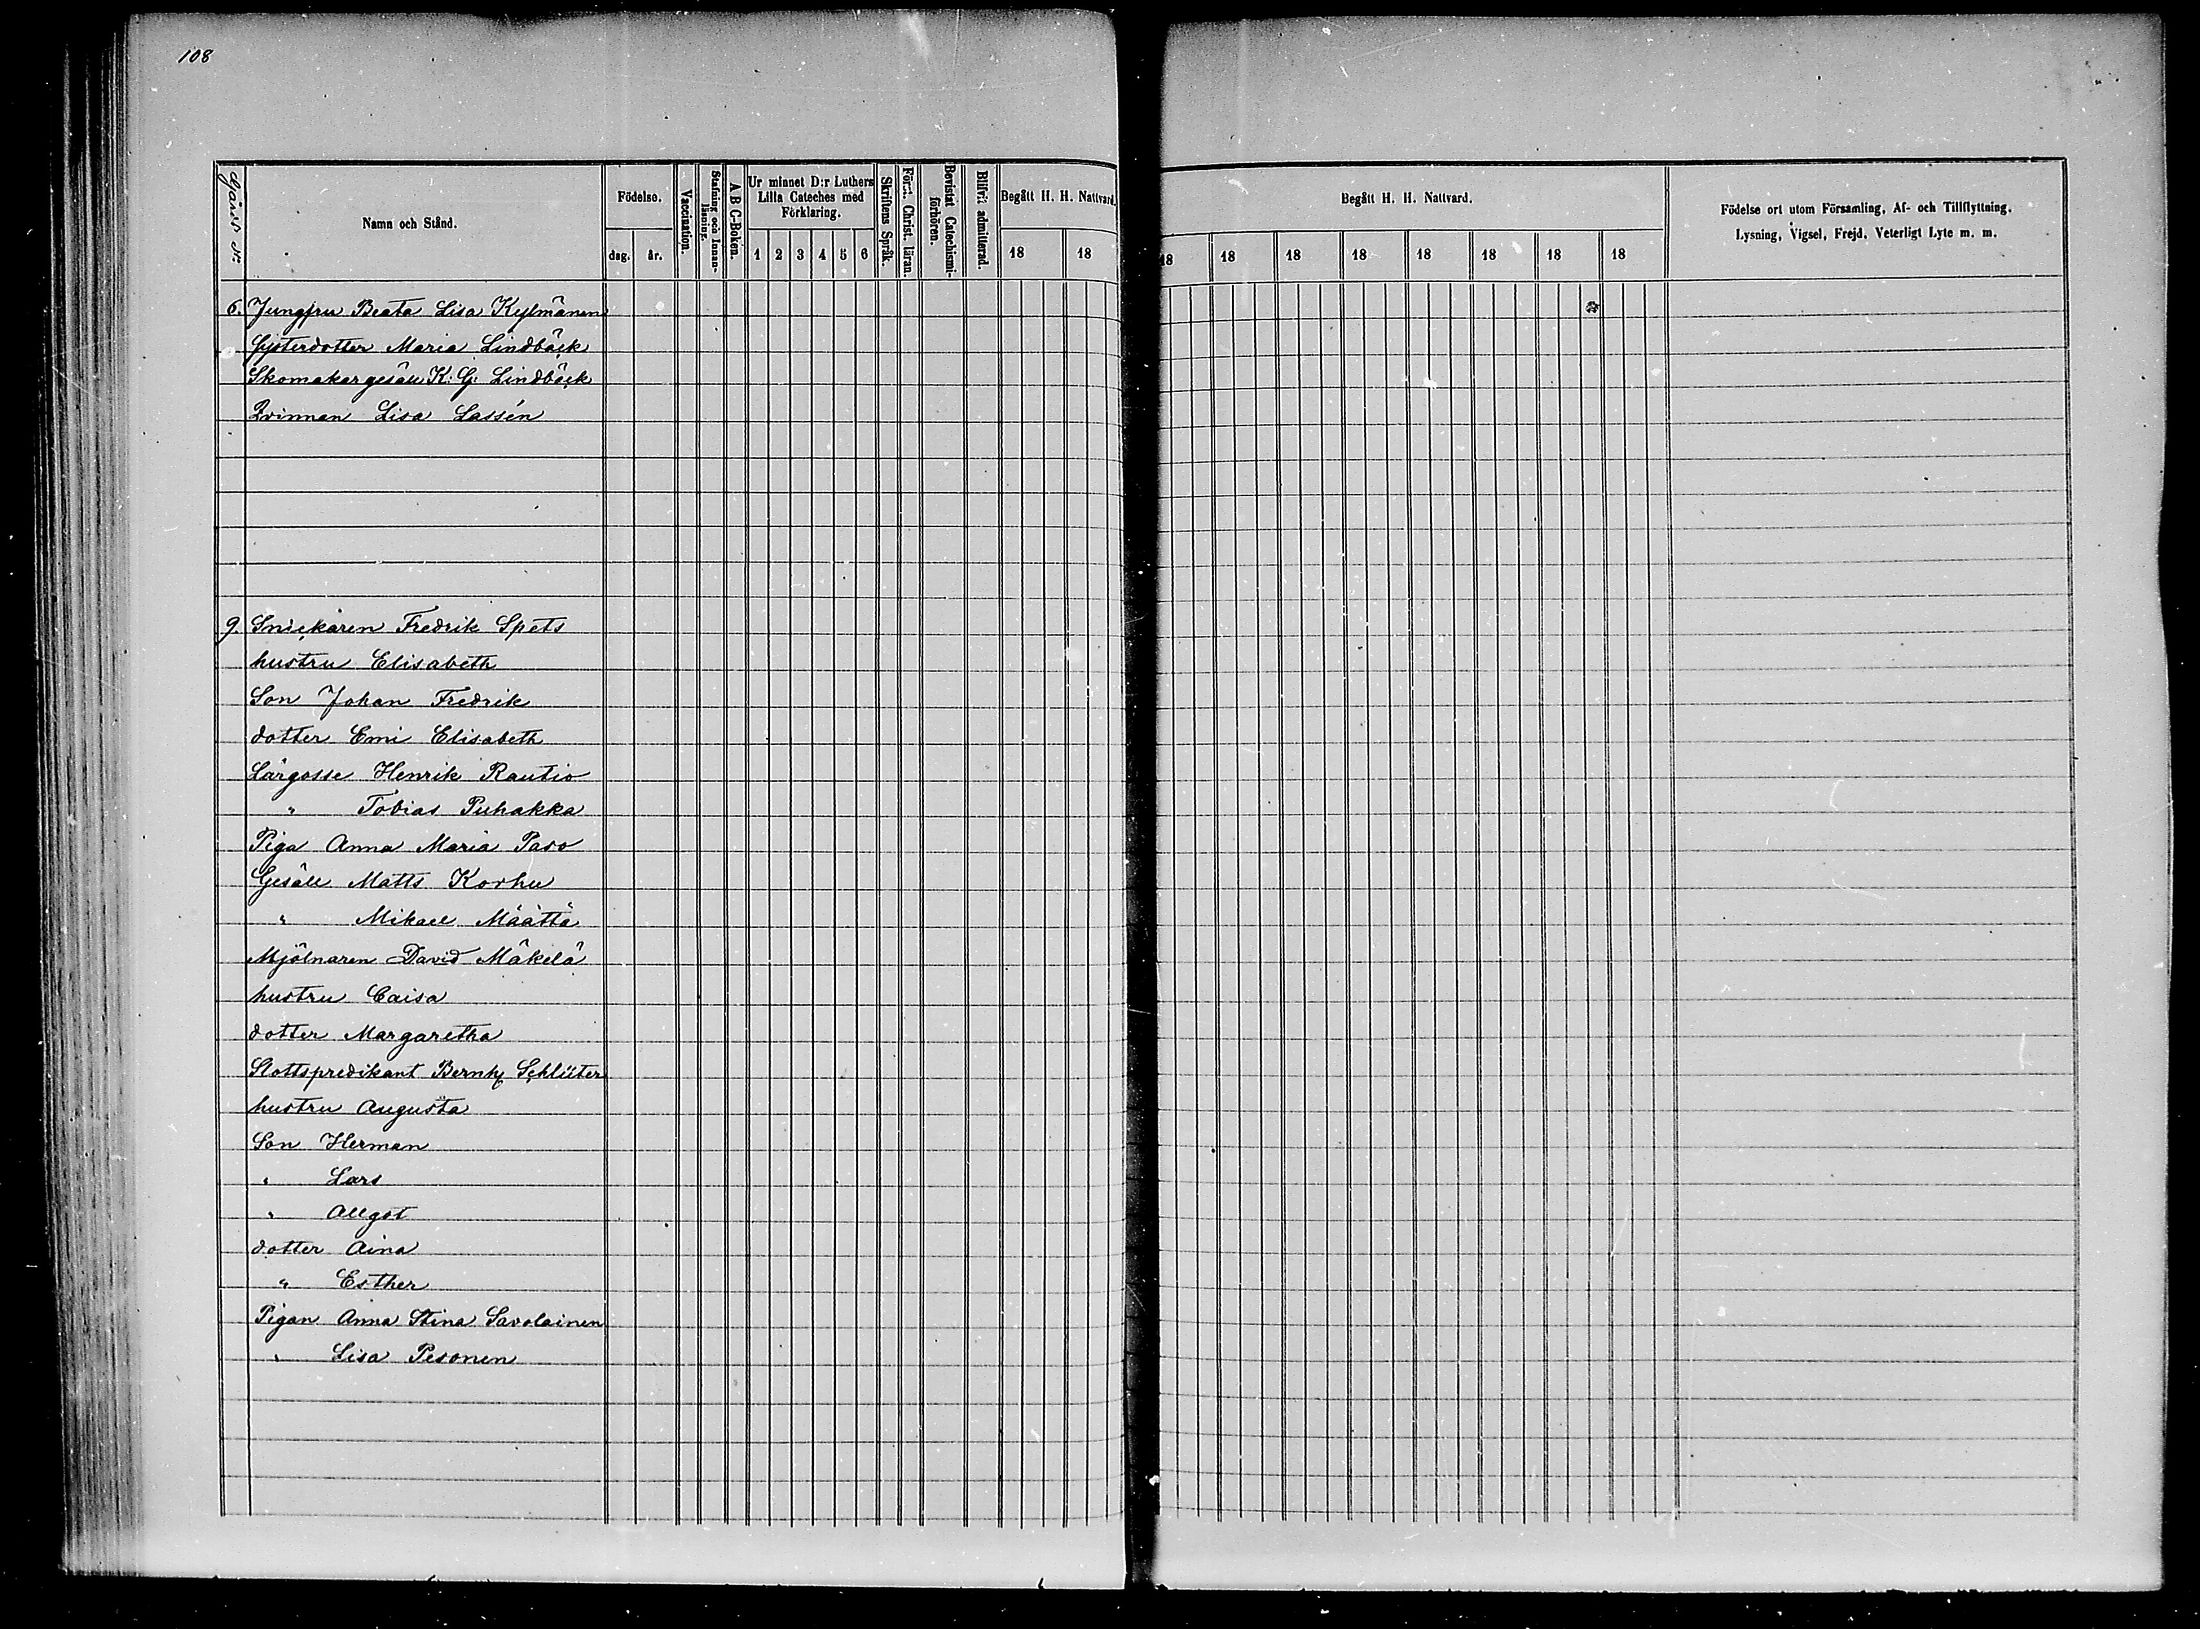 108
Gård №
Namn och Stånd.
Födelse.
dag.
år.
Vaccination.
Stafning och Innan-
läsning.
A B C-Boken.
Ur minnet D:r Luthers
Lilla Cateches med
Förklaring.
1 2 3 4 5 6
Skriftens Språk.
Först. Christ. läran.
Bevistat Catechismi-
förhören.
Blifvit admitterad.
Begått H. H. Nattvard.
18 18
Begått H. H. Nattvard.
18 18 18 18 18 18 18 18
Födelse ort utom Församling, Af- och Tillflyttning.
Lysning, Vigsel, Frejd, Veterligt Lyte m. m.
6. Jungfru Beata Lisa Kylmänen
Systerdotter Maria Lindbäck
Skomakargesäll K: G: Lindbäck
Qvinnan Lisa Lassén
9. Snickaren Fredrik Spets
hustru Elisabeth
Son Johan Fredrik
dotter Emi Elisabeth
Lärgosse Henrik Rautio
" Tobias Puhakka
Piga Anna Maria Paso
Gesäll Matts Korhu
" Mikael Määttä
Mjölnaren David Mäkelä
hustru Caisa
dotter Margaretha
Slottspredikant Bernh Schlüter
hustru Augusta
Son Herman
" Lars
" Allgot
dotter Aina
" Esther
Pigan Anna Stina Savolainen
" Lisa Pesonen